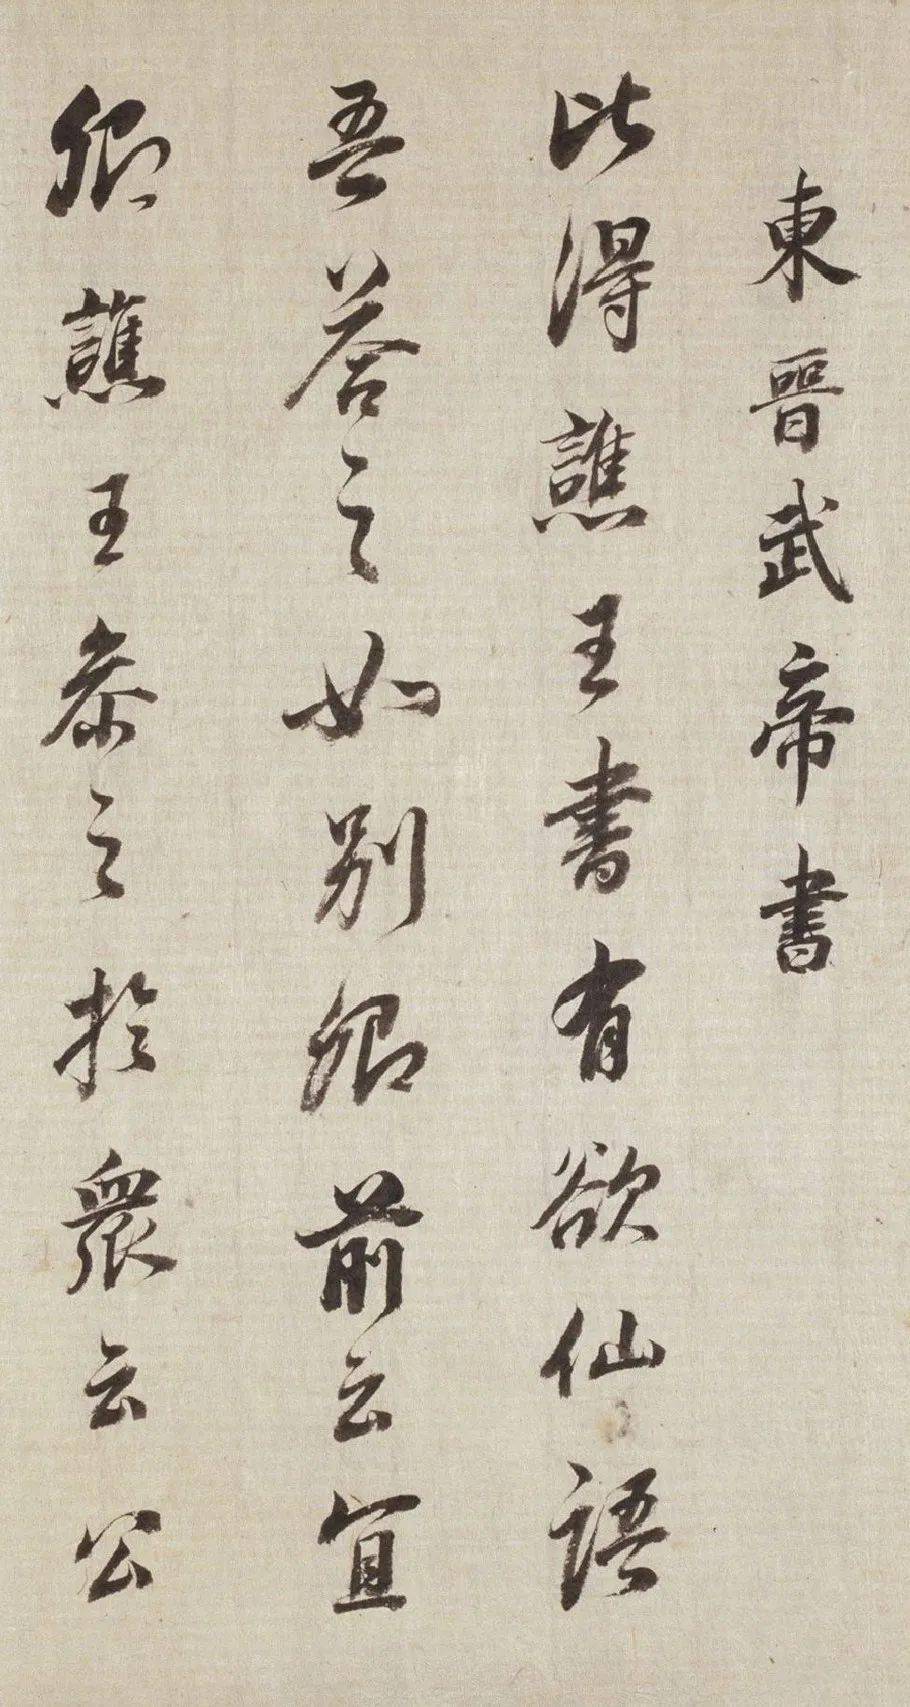 東晉武帝書
比得譙王書有欲仙語
吾答之如别卿前云宜
卿譙王恭之於眾云公